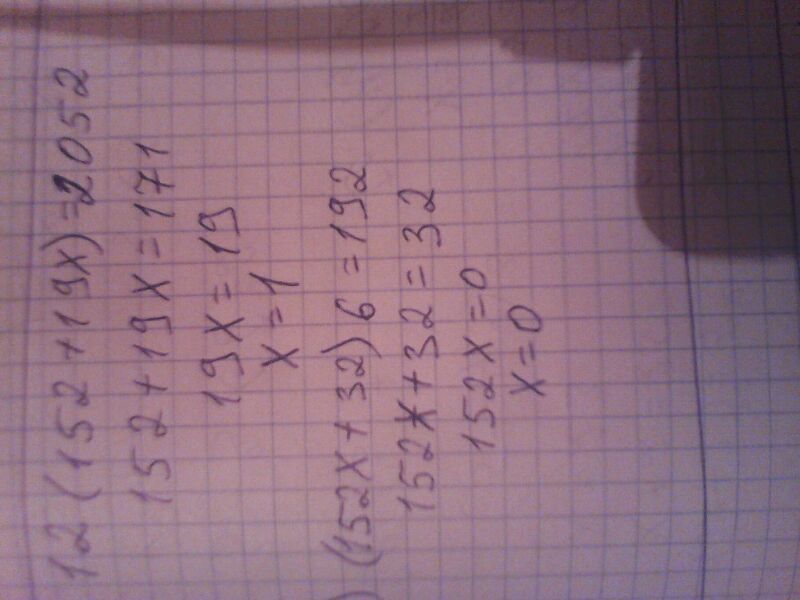 12(152+19x)=2052
152+19x=171
19x=19
x=1
) (152x+32)6=192
152x+32=32
152x=0
x=0